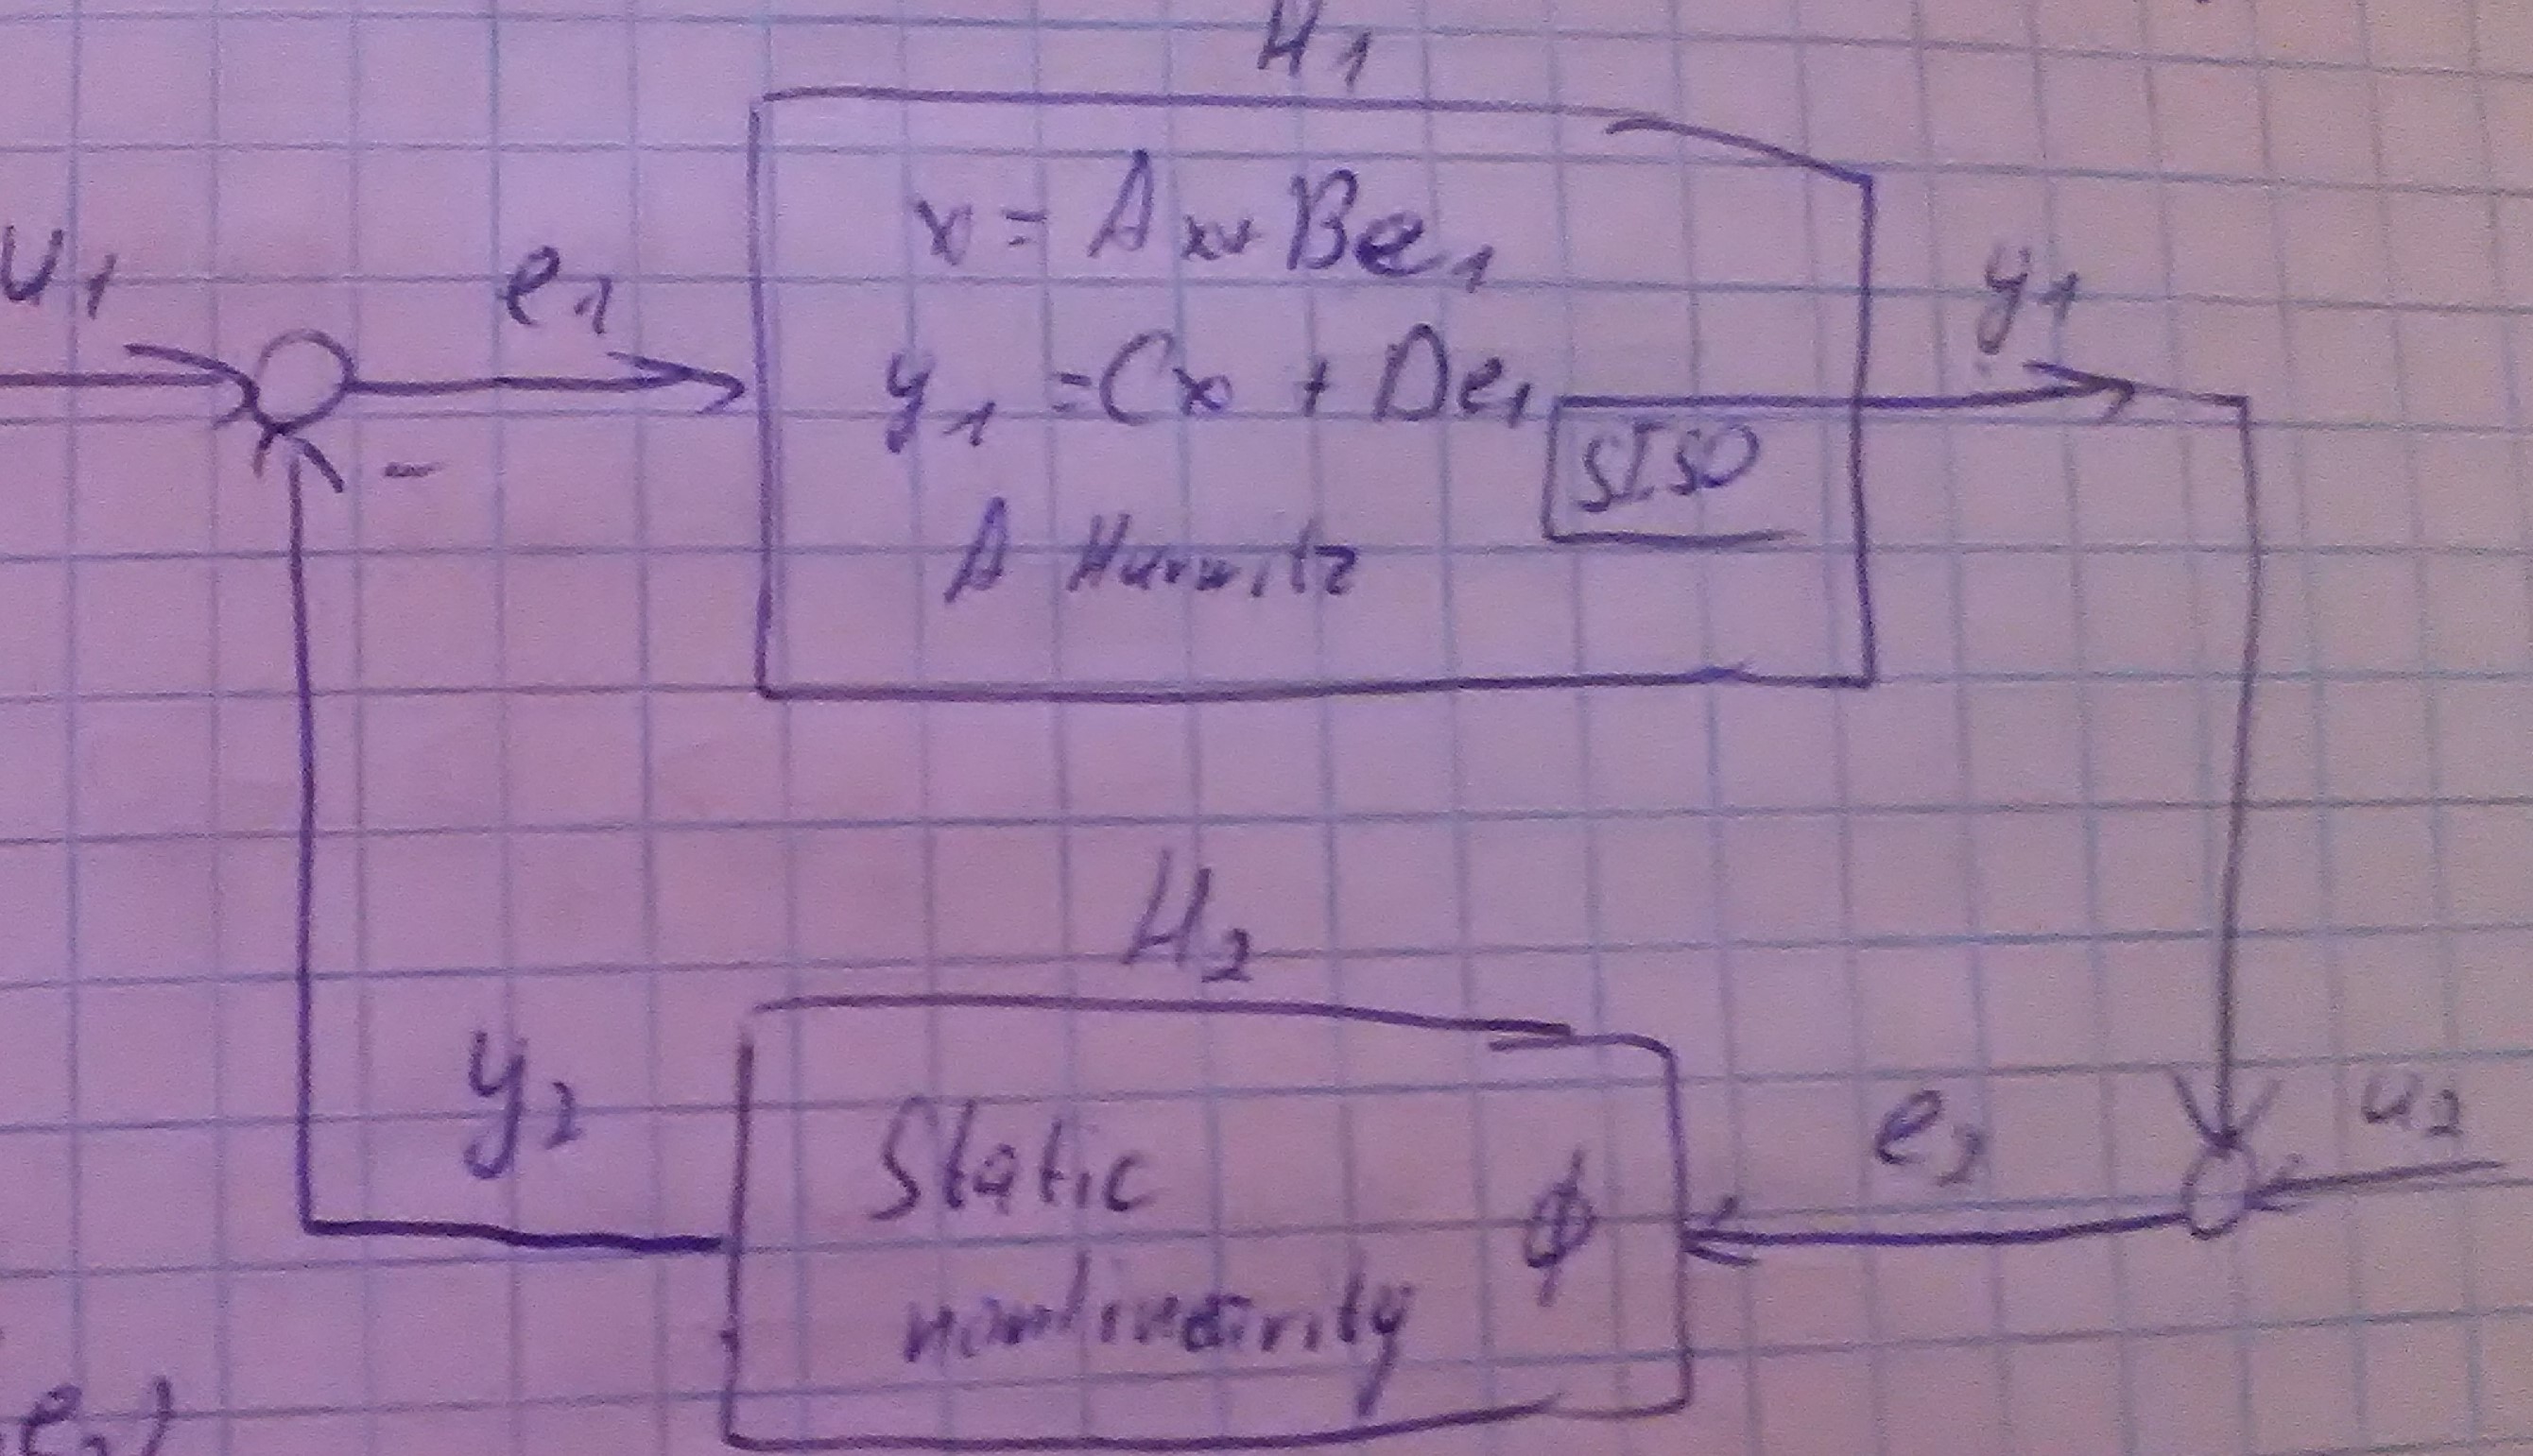 H1
u1
e1
x = Ax + Be1
y1 = Cx + De1
SISO
A Hurwitz
y1
H2
y2
Static
nonlinearity
ϕ
e2
u2
-
e2)